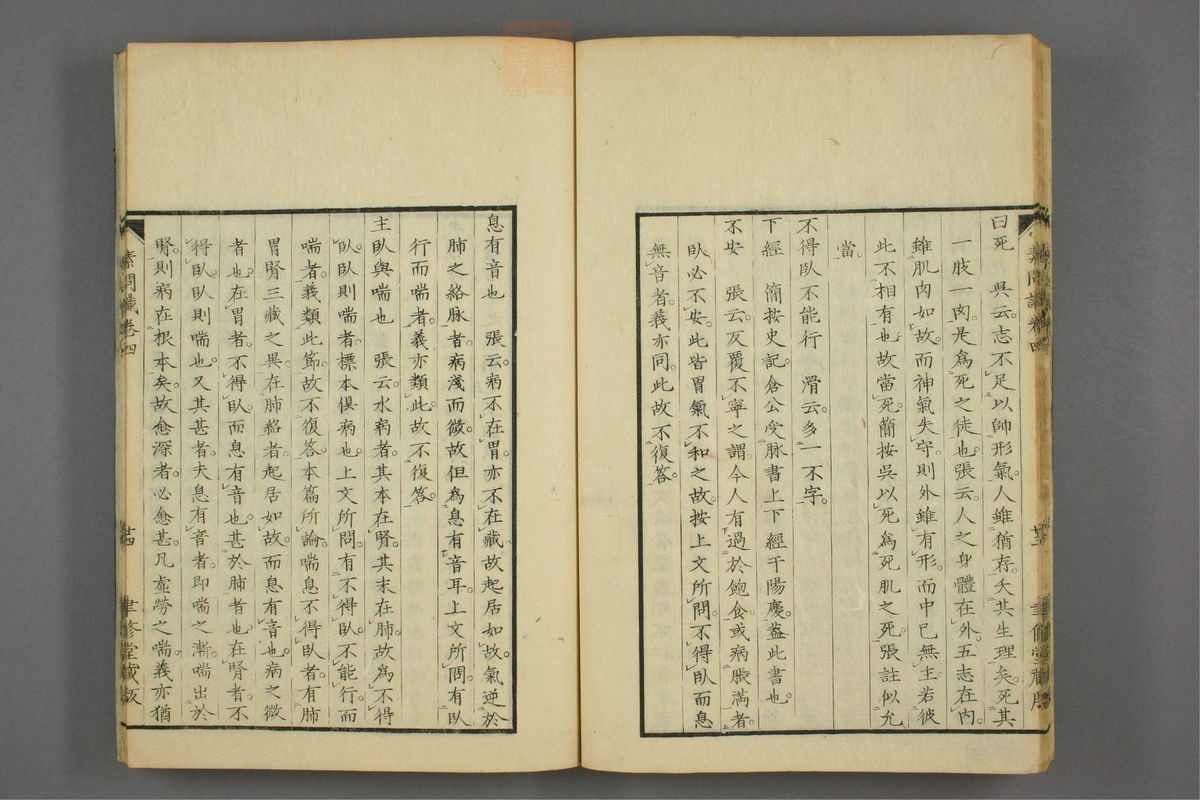 曰死 吳云。志不足以帥形氣。人雖猶存。夭其生理矣。死其
一肢一肉。是爲死之徒也。張云。人之身體在外。五志在內。
雖肌肉如故。而神氣失守。則外雖有形。而中已無主。若彼
此不相有也。故當死。簡按吳以死爲死肌之死。張註似允
當。
不得臥不能行 滑云。多一不字。
下經 簡按史記倉公受脈書上下經于陽慶。蓋此書也。
不安 張云。反覆不寧之謂。今人有過於飽食。或病脹滿者。
臥必不安。此皆胃氣不和之故。按上文所問。不得臥而息
無音者。義亦同。此故不復答。
素問識卷四
廿三
聿修堂藏版
息有音也 張云。病不在胃。亦不在藏。故起居如故。氣逆於
肺之絡脈者。病淺而微。故但爲息有音耳。上文所問。有臥
行而喘者。義亦類此。故不復答。
主臥與喘也 張云。水病者。其本在腎。其末在肺。故爲不得
臥。臥則喘者。標本俱病也。上文所問。有不得臥。不能行。而
喘者。義類此節。故不復答。本篇所論喘息不得臥者。有肺
胃腎三藏之異。在肺絡者。起居如故。而息有音也。病之微
者也。在胃者。不得臥。而息有音也。甚於肺者也。在腎者。不
得臥。臥則喘也。又其甚者。夫息有音者。即喘之漸。喘出於
腎。則病在根本矣。故愈深者。必愈甚。凡虛勞之喘。義亦猶
素問識卷四
廿四
聿修堂藏版